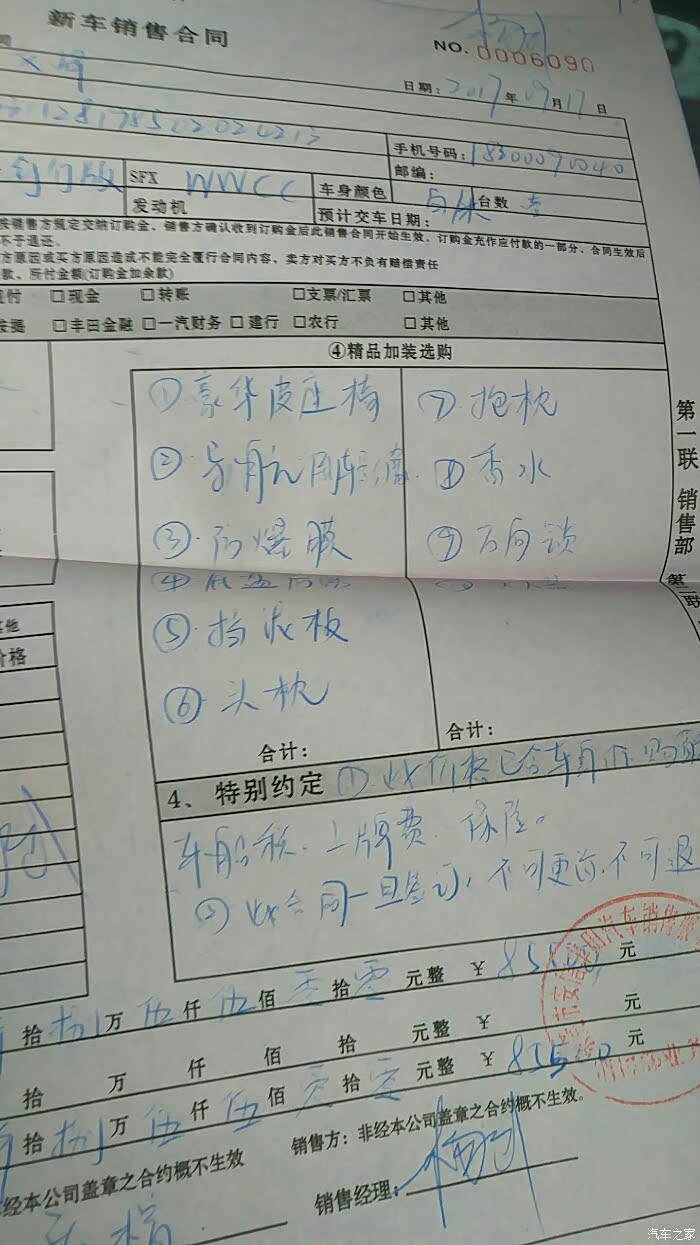 新车销售合同
NO. 0006090
日期: 2017 年 09 月 17 日
手机号码: 18300090040
邮编:
SFX WWCC
车身颜色
台数 壹
发动机
预计交车日期:
按销售方规定交纳订购金、销售方确认收到订购金后此销售合同开始生效。订购金充作应付款的一部分、合同生效后
不予退还。
方原因或买方原因造成不能完全履行合同内容、卖方对买方不负有赔偿责任
款、所付金额(订购金加余款)
现付 □现金 □转账 □支票/汇票 □其他
按揭 □丰田金融 □一汽财务 □建行 □农行 □其他
④精品加装选购
①豪华皮座椅 ⑦抱枕
②导航 ⑧香水
③防爆膜 ⑨方向锁
⑤挡泥板
⑥头枕
合计: 合计:
第一联 销售部
第二联
其他
价格
4、特别约定 ①此价格已含车身价.购置
车船税.上牌费.保险。
②此合同一旦签订,不可更改.不可退
拾捌万伍仟伍佰零拾零元整 ¥ 85500 元
拾 万 仟 佰 拾 元整 ¥ 元
拾捌万伍仟伍佰零拾零元整 ¥ 85500 元
非经本公司盖章之合约概不生效
销售方: 非经本公司盖章之合约概不生效。
销售经理:
汽车之家